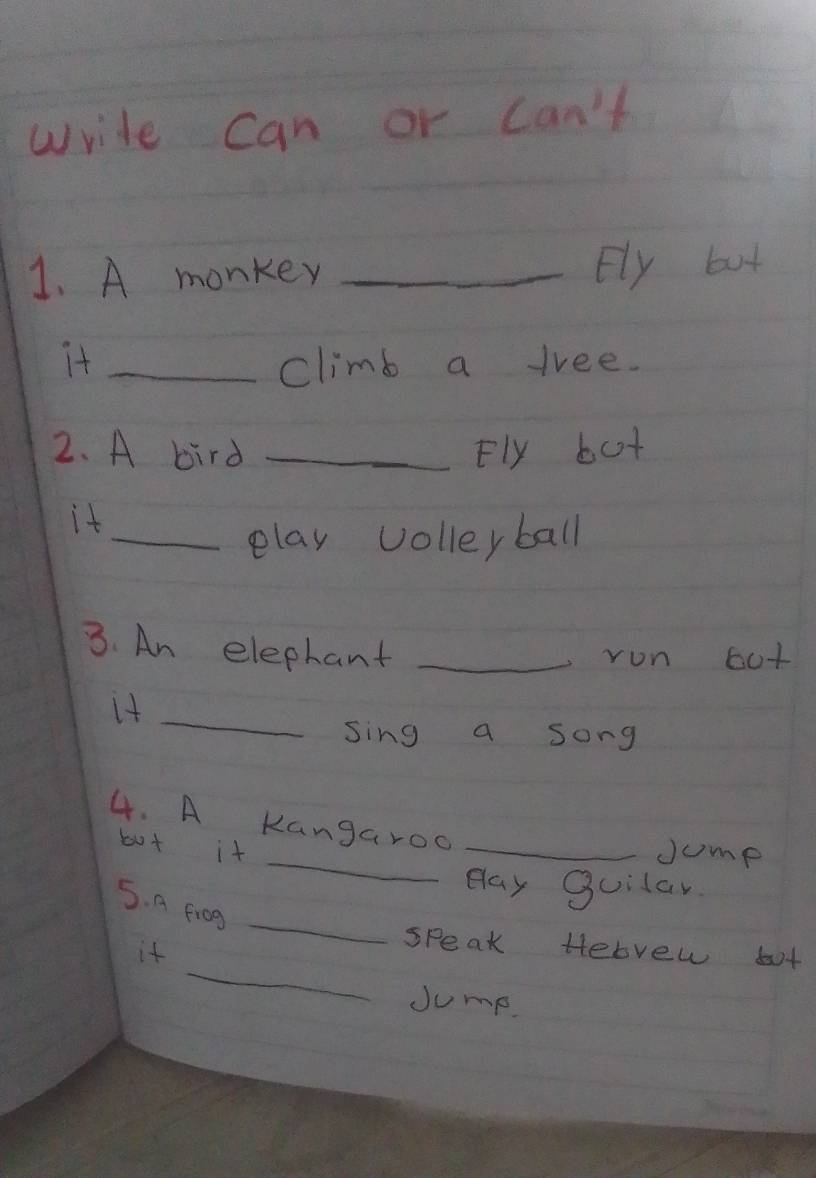 Write Can or Can't
1. A monkey ________ Fly but
it ________ Climb a tree.
2. A bird ________ Fly but
it ________ play volleyball
3. An elephant ________ run but
it ________ sing a song
4. A Kangaroo ________ Jump
but it ________ Play guitar.
5. A frog ________ speak Hebrew but
it ________ Jump.